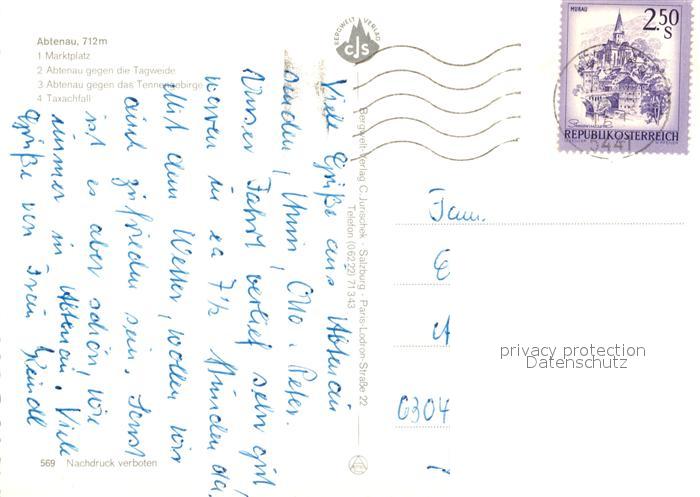 Abtenau, 712m
1 Marktplatz
2 Abtenau gegen die Tagweide
3 Abtenau gegen das Tennengebirge
4 Taxachfall
BERGWELT VERLAG
CJS
MURAU
2.50 S
REPUBLIK ÖSTERREICH
5441
Viele Grüße aus Abtenau
senden Mimi, Otto, Peter.
Unser Fahrt verlief sehr gut
waren in ca 7½ Stunden da.
Mit dem Wetter wollen wir
auch zufrieden sein. Sonst
ist es aber schön wie
immer in Abtenau. Viele
Grüße von Frau Reindl
Bergwelt-Verlag C.Jurischek · Salzburg · Paris-Lodron-Straße 22
Telefon (06222) 71343
Fam.
6304
privacy protection
Datenschutz
569 Nachdruck verboten